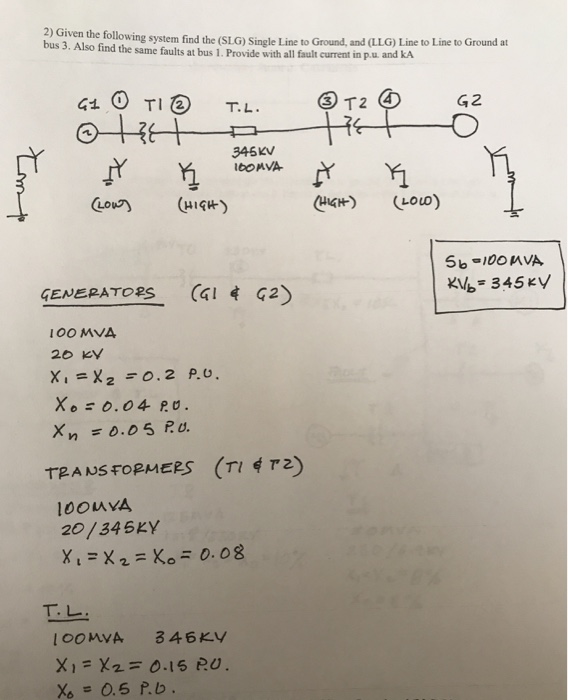 2) Given the following system find the (SLG) Single Line to Ground, and (LLG) Line to Line to Ground at
bus 3. Also find the same faults at bus 1. Provide with all fault current in p.u. and kA
G1 ① T1 ② T.L. ③ T2 ④ G2
345KV
100MVA
(LOW) (HIGH) (HIGH) (LOW)
Sb = 100MVA
KVb = 345KV
GENERATORS (G1 & G2)
100 MVA
20 KV
X1 = X2 = 0.2 P.U.
X0 = 0.04 P.U.
Xn = 0.05 P.U.
TRANSFORMERS (T1 & T2)
100MVA
20/345KV
X1 = X2 = X0 = 0.08
T.L.
100MVA 345KV
X1 = X2 = 0.15 P.U.
X0 = 0.5 P.U.